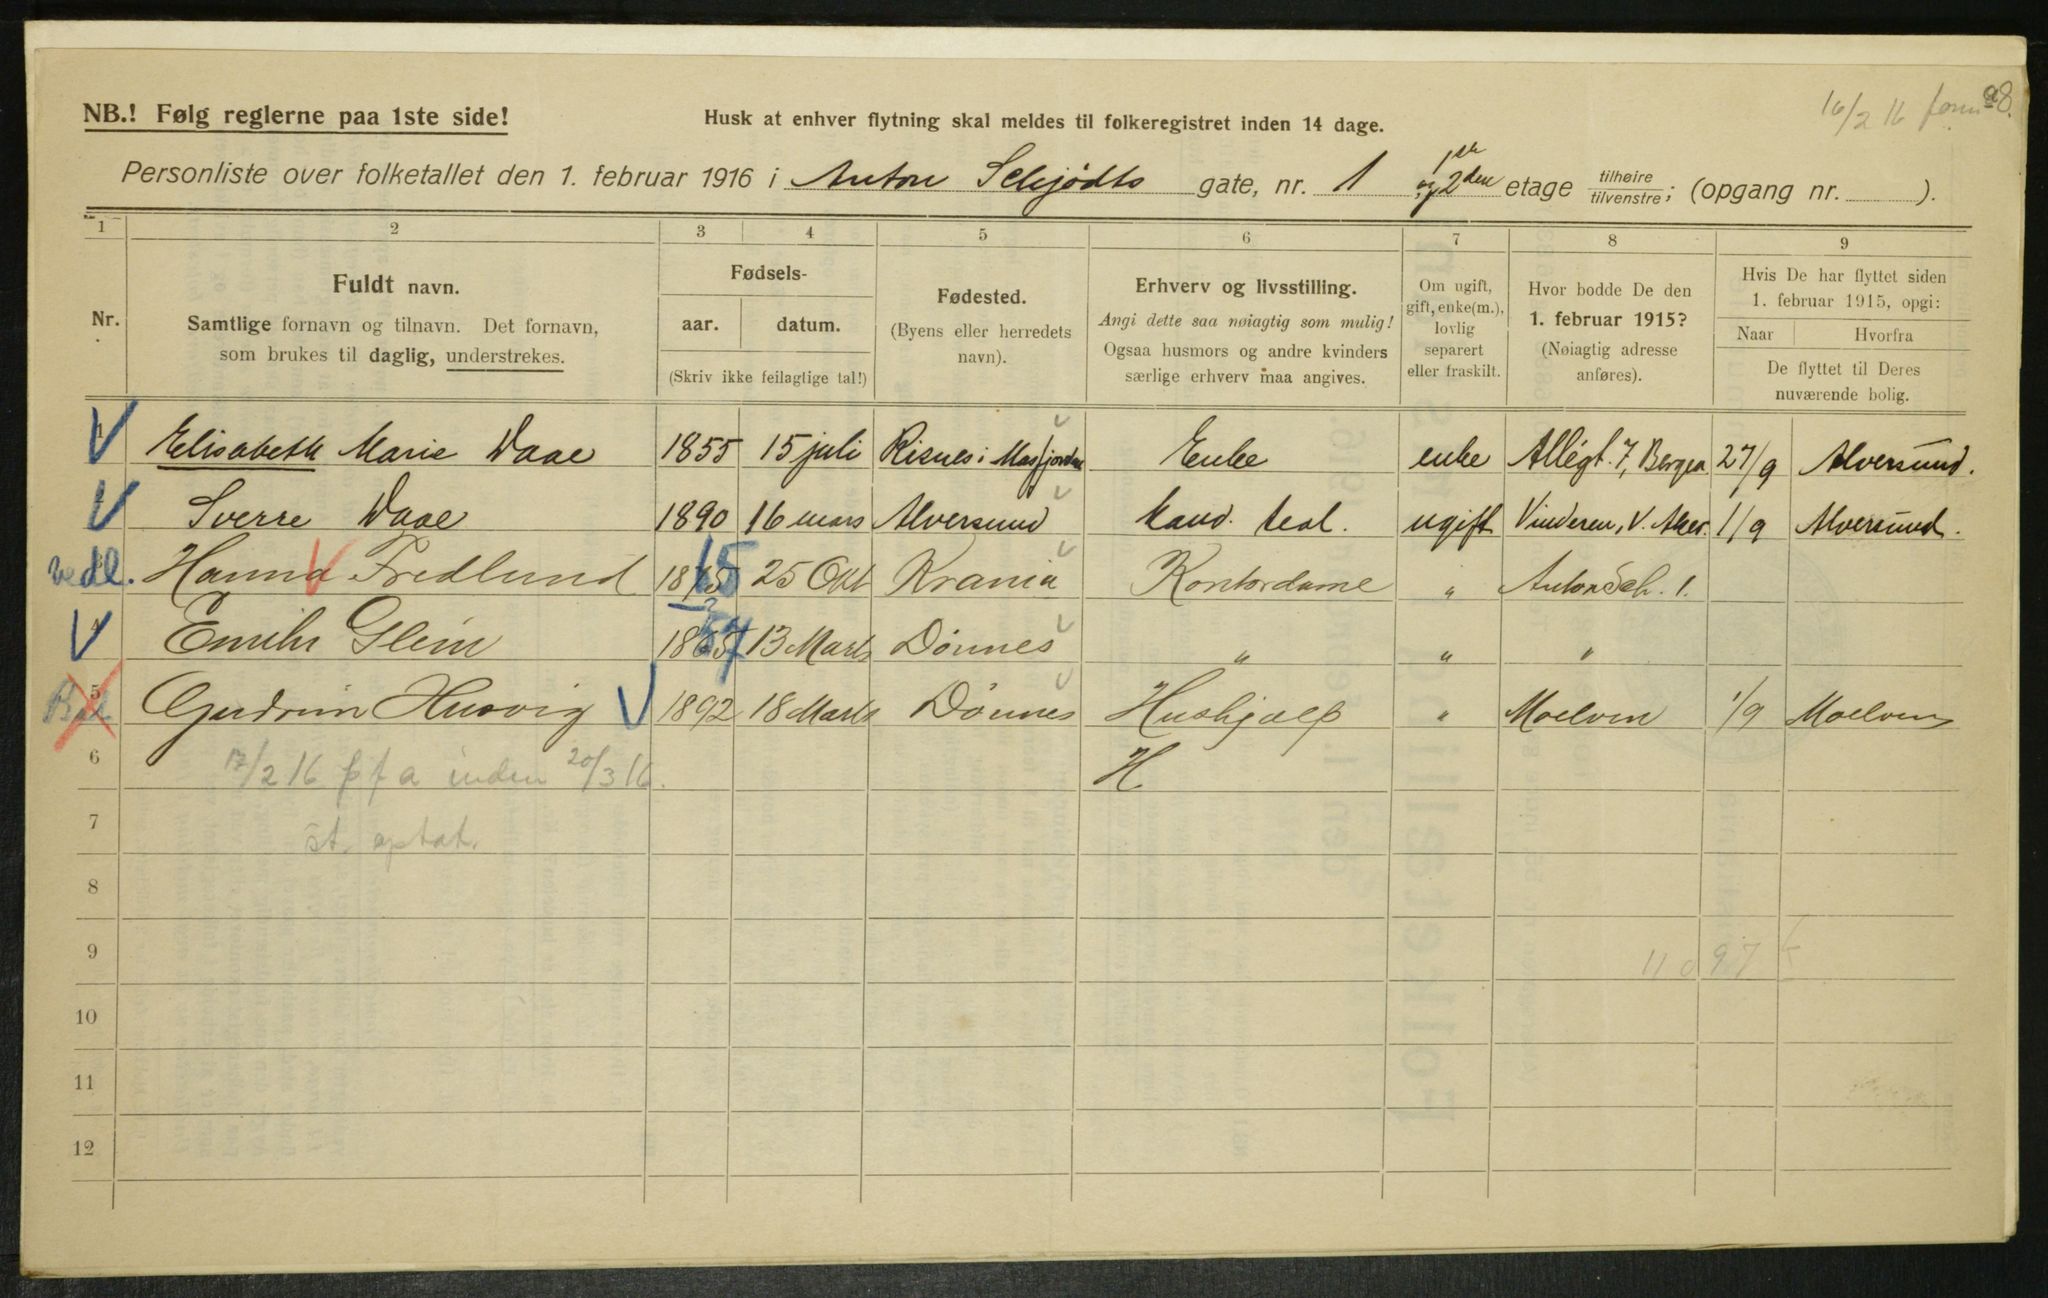 16/2 16
98.
NB.! Følg reglerne paa 1ste side!
Husk at enhver flytning skal meldes til folkeregistret inden 14 dage.
Personliste over folketallet den 1. februar 1916 i Anton Schjødts gate, nr. 1 1ste og 2den etage tilhøire/tilvenstre; (opgang nr. ).
1 2 3 4 5 6 7 8 9
Nr.
Fuldt navn.
Samtlige fornavn og tilnavn. Det fornavn,
som brukes til daglig, understrekes.
Fødsels-
aar. datum.
(Skriv ikke feilagtige tal!)
Fødested.
(Byens eller herredets
navn).
Erhverv og livsstilling.
Angi dette saa nøiagtig som mulig!
Ogsaa husmors og andre kvinders
særlige erhverv maa angives.
Om ugift,
gift, enke(m.),
lovlig
separert
eller fraskilt.
Hvor bodde De den
1. februar 1915?
(Nøiagtig adresse
anføres).
Hvis De har flyttet siden
1. februar 1915, opgi:
Naar Hvorfra
De flyttet til Deres
nuværende bolig.
1 Elisabeth Marie Daae 1855 15 juli Risnes i Masfjorden Enke enke Allégt. 7, Bergen 27/9 Alversund.
Sverre Daae 1890 16 mars Alversund kand. real. ugift Vinderen, V. Aker. 1/9 Alversund.
vedl. Hanna Fredlund 1875 15 25 Okt Krania Kontordame " Anton Sch. 1.
4 Emilie Glein 1865 57 13 Marts Dønnes " " "
5 Gudrun Husvig 1892 18 Marts Dønnes Hushjælp " Moelven 1/9 Moelven
6 17/2 16 p f a inden 20/3 16. H
7 st. optat.
8
9 97
10
11
12